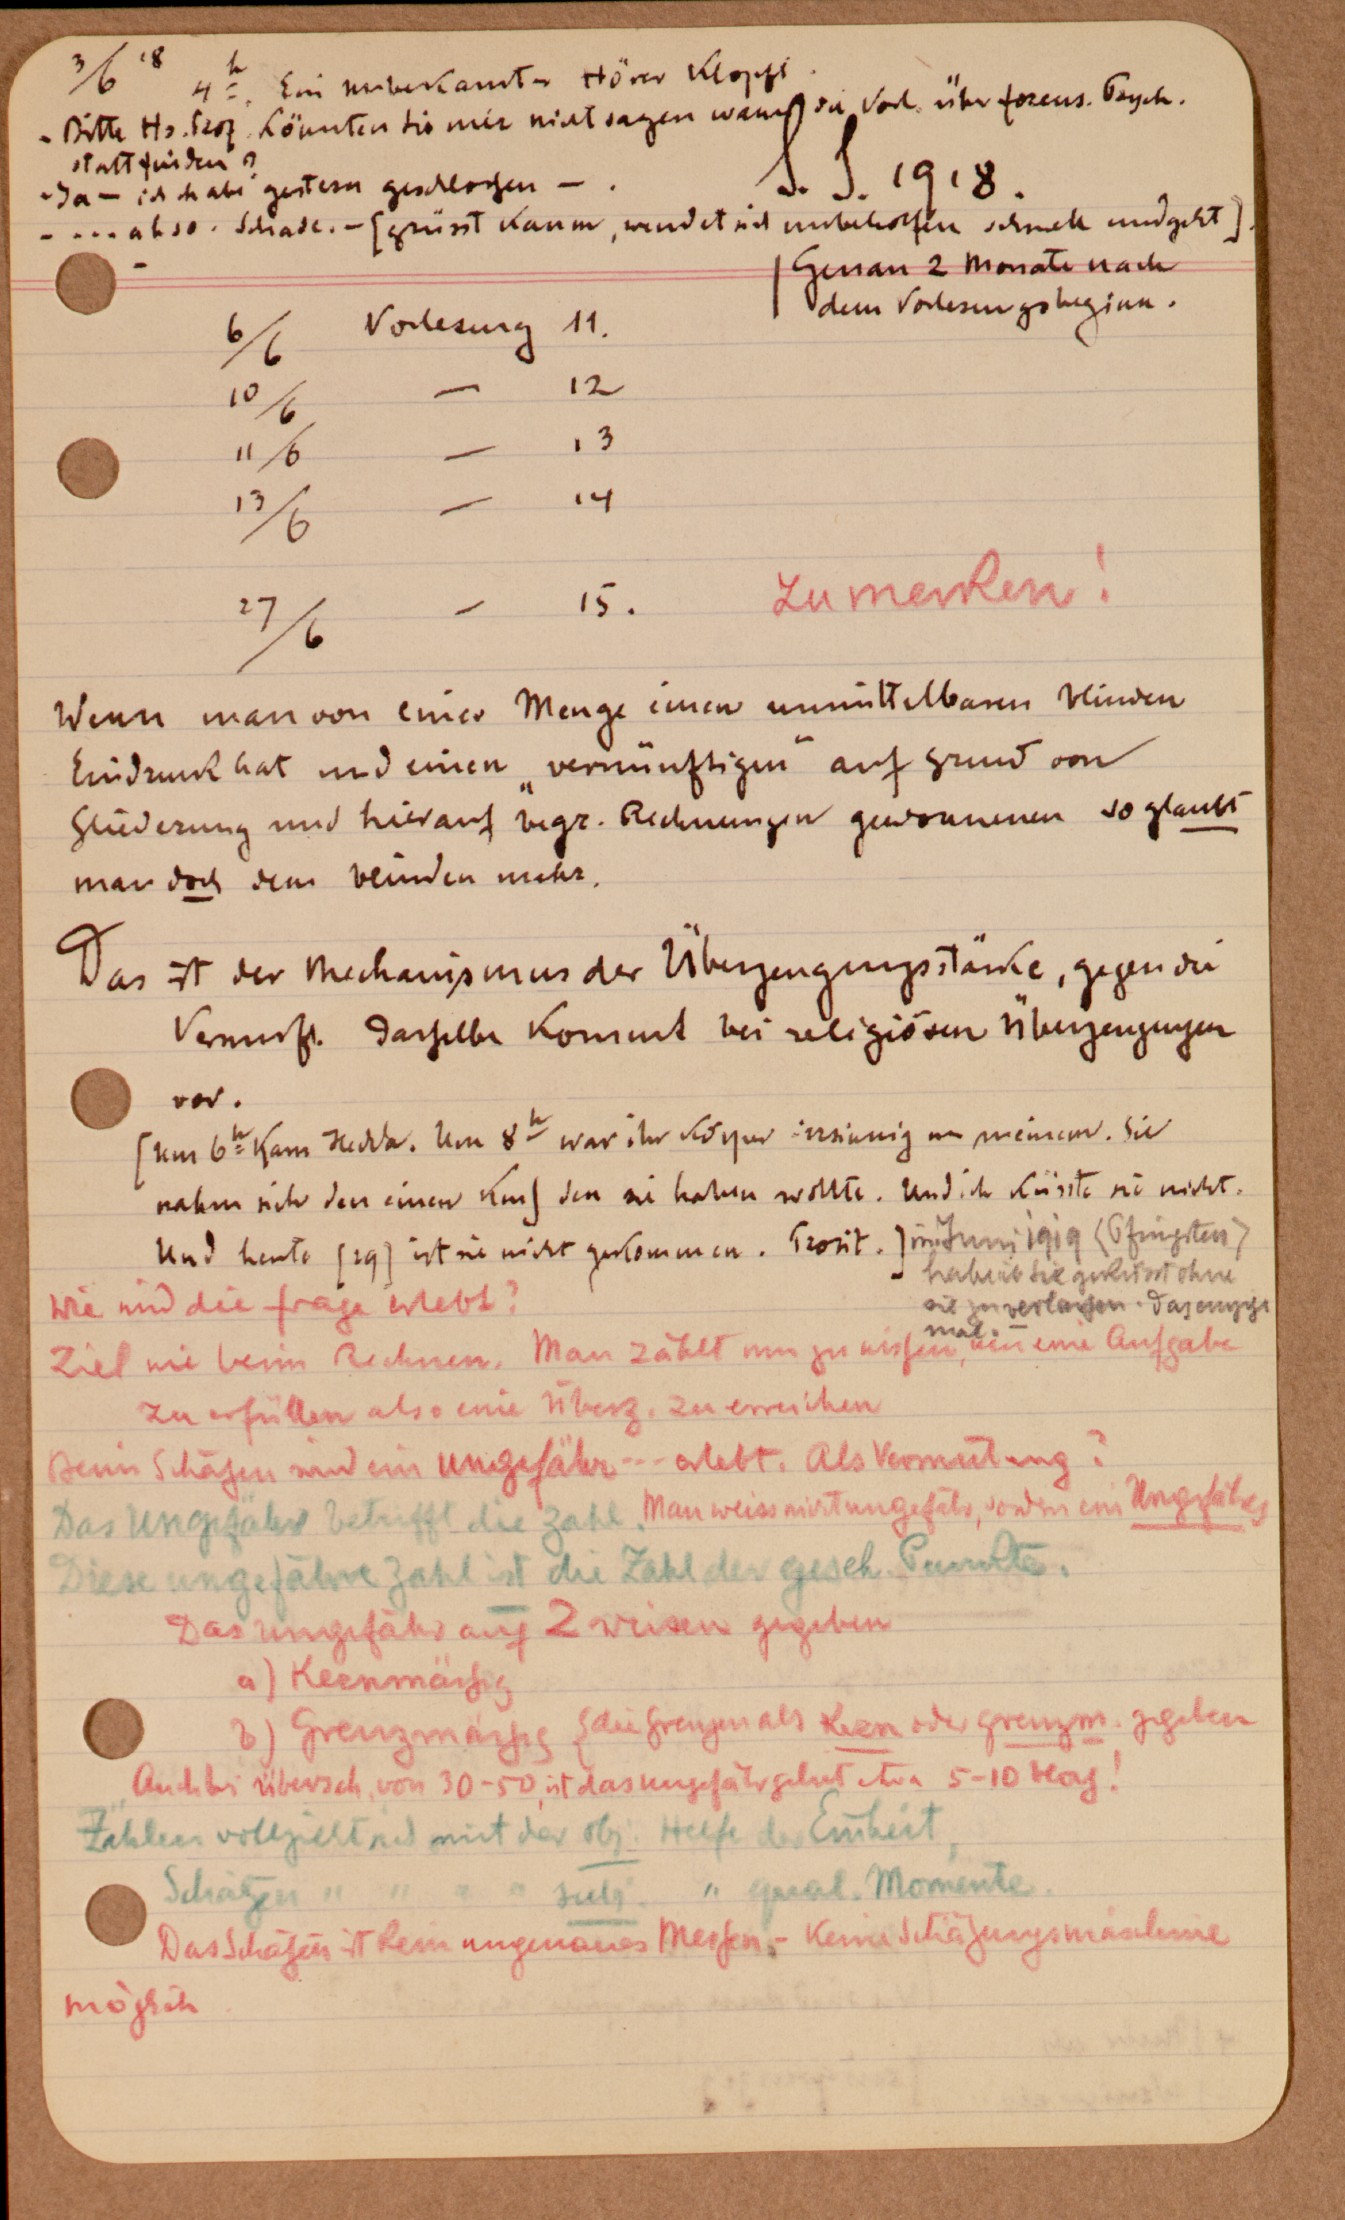 3/6 18 4h. Ein unbekannter Hörer klopft.
- Bitte Hr. Prof. könnten Sie mir nicht sagen wann die Vorl. über forens. Psych.
stattfinden?
- Ja — ich habe gestern geschlossen — .
S. S. 1918.
- ... also. Schade. — [grüsst kaum, wendet sich unbeholfen schnell und geht].
Genau 2 Monate nach
dem Vorlesungsbeginn.
6/6 Vorlesung 11.
10/6 — 12
11/6 — 13
13/6 — 14
27/6 — 15.
Zu merken!
Wenn man von einer Menge einen unmittelbaren blinden
Eindruck hat und einen „vernünftigen" auf Grund von
Gliederung und hierauf begr. Rechnungen gewonnenen so glaubt
man doch dem blinden mehr.
Das ist der Mechanismus der Überzeugungsstärke, gegen die
Vernunft. Dasselbe kommt bei religiösen Überzeugungen
vor.
[Um 6h kam Hedda. Um 8h war ihr Körper irrsinnig an meinem. Sie
nahm sich den einen Kuss den sie haben wollte. Und ich küsste sie nicht.
Und heute [29] ist sie nicht gekommen. Prosit.]
im Juni 1919 (Pfingsten)
habe ich sie geküsst ohne
sie zu verlangen. Das einzige
mal.
Wie wird die Frage erlebt?
Ziel wie beim Rechnen. Man zählt um zu wissen, um eine Aufgabe
zu erfüllen also eine Überz. zu erreichen
Beim Schäzen wird ein Ungefähr --- erlebt. Als Vermutung?
Das Ungefähr betrifft die Zahl. Man weiss nicht ungefähr, sondern ein Ungefähres
Diese ungefähre Zahl ist die Zahl der gesch. Punkte.
Das ungefähr auf 2 weisen gegeben
a) Kernmässig
b) Grenzmässig {die Grenzen als Kern oder grenzm. gegeben
Auch bei übersch. von 30-50, ist das ungefähr gebiet etwa 5-10 bloss!
Zählen vollzieht sich mit der obj. Hilfe der Einheit,
Schäzen " " " " subj. " qual. Momente.
Das Schäzen ist kein ungenaues Messen. - Keine Schäzungsmaschine
möglich